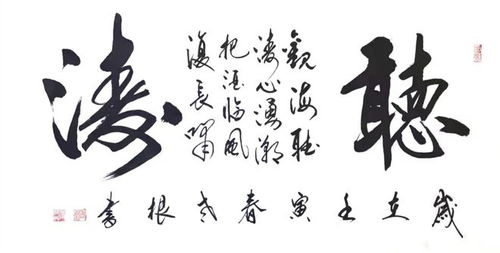 聽濤
觀海聽
濤心湧潮
把酒臨風
復長嘯
歲在壬寅春老根書